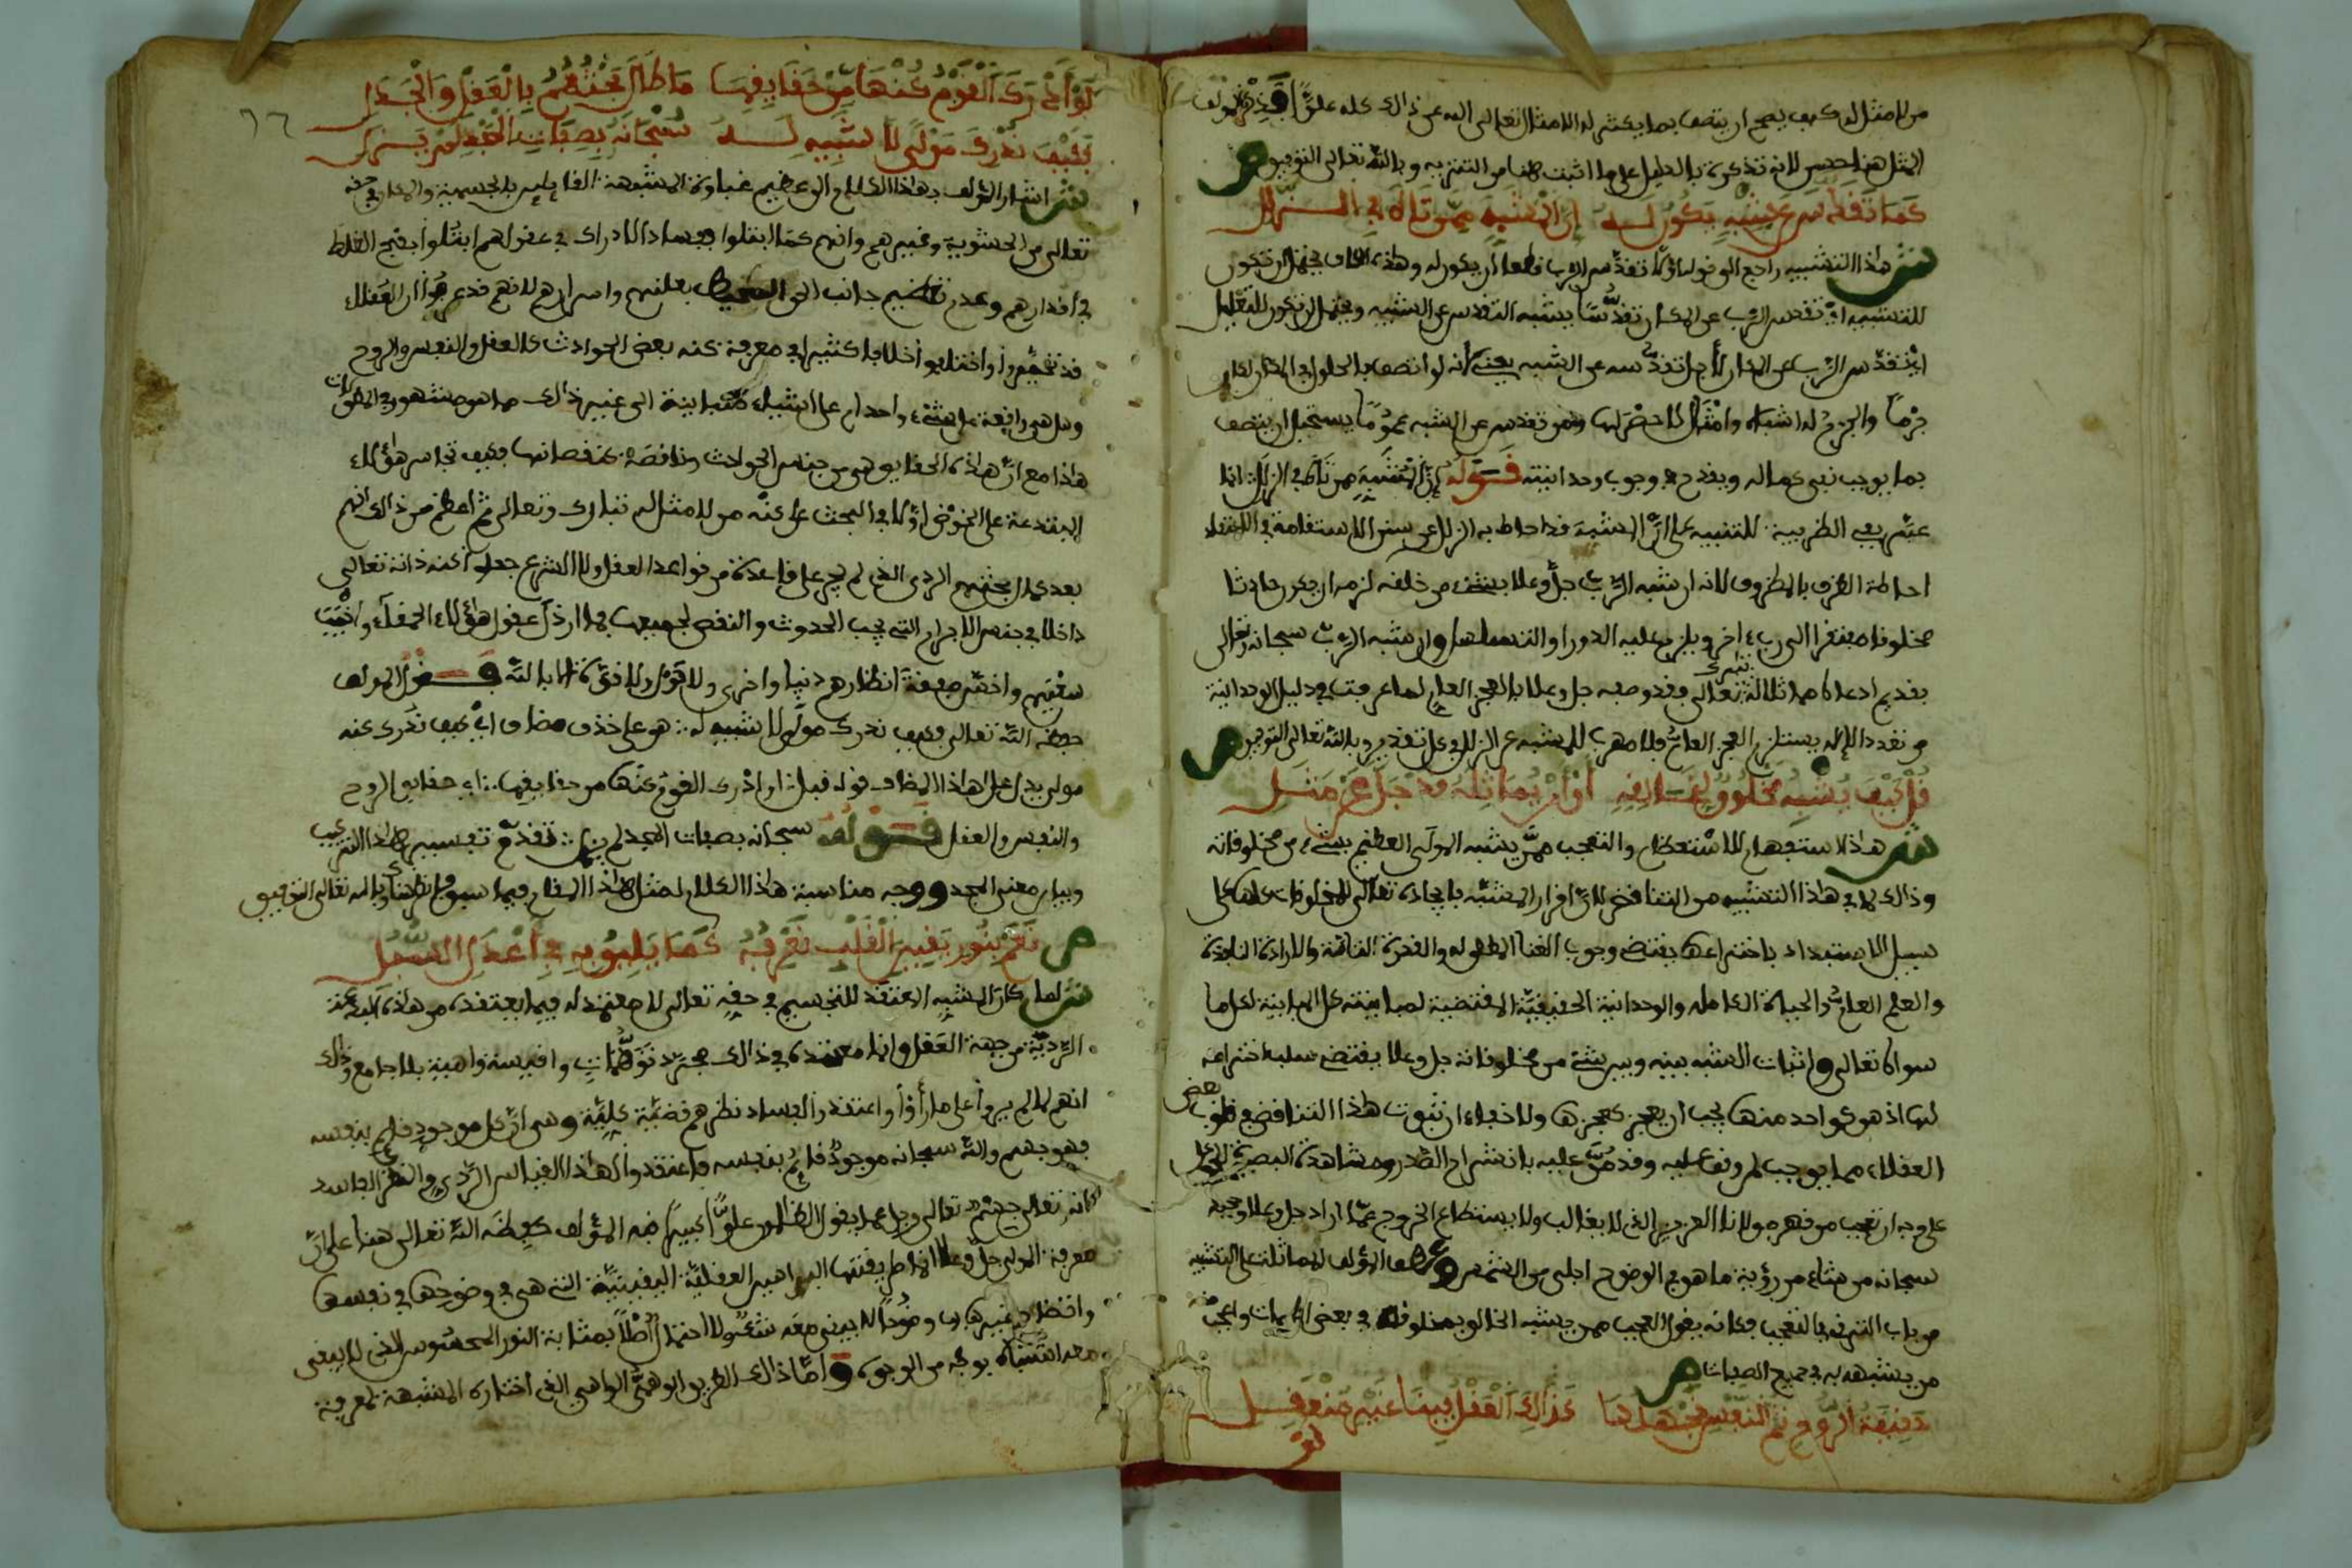 من لا مثل له كيف يصح ان يتصف بما يكثر له الامثال تعالى الله عن ذالك كله علوّا فذكر المولف
المثل هنا حسن لانه تذكرة بالدليل على ما اثبت هنا من التنزيه وبالله تعالى التوفيق ص
كما تقدس عن شبه يكون له ان المشبه ممن تاه في الزلل
ش هذا التشبيه راجع الى قوله اولا تقدس الرب فطعا ان يكون له وهذه الكاف يحتمل ان تكون
للتشبيه اي تقدس الرب عن المكان تقدسا يشبه التقدس عن الشبيه ويحتمل ان تكون للتعليل
اي تقدس الرب عن المكان لاجل تقدسه عن الشبه يعني لانه لو اتصف بالحلول في المكان لكان
جرما والجرم له اشباه وامثال لا حصر لها ومن تقدس عن الشبه عموما يستحيل ان يتصف
بما يوجب نفي كماله ويقدح في وجوب وحدانيته قوله ان المشبه ممن تاه في الزلل انما
عبر بفي الظرفية للتنبيه على ان المشبه قد احاط به الزلل عن سنن الاستقامة في الاعتقاد
احاطة الظرف بالمظروف لانه ان شبه الرب جل وعلا بشيء من خلقه لزمه ان يكون حادثا
مخلوقا مفتقرا الى رب اخر ويلزم عليه الدور او التسلسل وان شبه الرب سبحانه وتعالى
بقديم ادعا مماثلة تعالى فقد وصفه جل وعلا بالعجز العام لما عرفت في دليل الوحدانية
من تعدد الاله يستلزم العجز العام فلا مهرب للمشبه عن الزلل على كل تقدير وبالله تعالى التوفيق ص
قل كيف يشبه مخلوق لخالقه او ان يماثله قد جل عن مثل
ش هذا الاستفهام للاستعظام والتعجب ممن يشبه المولى العظيم بشيء من مخلوقاته
وذالك لما في هذا التشبيه من التناقض لان اقرار المشبه بايجاده تعالى للمخلوقات كلها على
سبيل الاستبداد باختراعها يقتضي وجوب الغنا المطلق له والقدرة التامة والارادة النافذة
والعلم العام والحياة الكاملة والوحدانية الحقيقية المقتضية لمباينته كل المباينة لكل ما
سواه تعالى واثبات الشبه بينه وبين شيء من مخلوقاته جل وعلا يقتضي سلب اختراعه
لها اذ هو كواحد منها يجب ان يعجز كعجزها ولا خفاء ان ثبوت هذا التناقض في قلوب بعض
العقلاء مما يوجب لمن وقف عليه وقد من عليه بانشراح الصدر ومشاهدة البصيرة للحق
على وجه ان تعجب من قهر مولانا العزيز الذي لا يغالب ولا يستطاع الخروج عما اراد جل وعلا
سبحانه من شاء من رؤية ما هو في الوضوح اجلى من الشمس وعطف المؤلف المماثلة على التشبيه
من باب الترقي بالتعجب فكانه يقول العجب ممن يشبه الخالق بمخلوقاته في بعض الصفات واعجب
من يشبهه به في جميع الصفات ص
حقيقة الروح ثم النفس نجهلها كذالك العقل فينا غير منعقل
لو
٦٦
لو ادرك القوم كنها من حقايقها ما طال بحثهم بالعقل والجدل
فكيف ندرك مولى لا شبيه له سبحانه بصفات المجد لم يزل
ش اشار المؤلف بهذا الكلام الى عظيم غباوة المشبهة القايلين بالجسمية والمكان في حقه
تعالى من الحشوية وغيرهم وانهم كما ابتلوا بفساد الادراك في عقولهم ابتلوا بقبح الغلط
في اقدارهم وعدم تعظيم جانب الحق المحيط بعلنهم واسرارهم لانهم قد عرفوا ان العقلاء
قد تحيروا واختلفوا اختلافا كثيرا في معرفة كنه بعض الحوادث كالعقل والنفس والروح
وهل هي راجعة الى شيء واحد ام على اشياء متباينة الى غير ذالك مما هو مشهور في المطولات
هذا مع ان هذه الحقايق هي من جنس الحوادث وناقصة كنقصانها فكيف تجاسر هؤلاء
المبتدعة على الخوض اولا في البحث على كنه من لا مثل له تبارك وتعالى ثم اعظم من ذالك انهم
بعد كمال بحثهم الردي الذي لم يجر على قاعدة من قواعد العقل ولا الشرع جعلوا كنه ذاته تعالى
داخلا في جنس الاجرام التي يجب الحدوث والنقص لجميعها فما ارذل عقول هؤلاء الحمقاء واخيب
سعيهم واخسر صفقة انظارهم دنيا واخرى ولا حول ولا قوة الا بالله فقول المولف
حفظه الله تعالى فكيف ندرك مولى لا شبيه له هو على حذف مضاف اي كيف ندرك كنه
مولى يدل على هذا المضاف قوله قبل لو ادرك القوم كنها من حقايقها اي حقايق الروح
والنفس والعقل قوله سبحانه بصفات المجد لم يزل تقدم تفسير هذا التركيب
وبيان معنى المجد ووجه مناسبة هذا الكلام لمثل هذا المقام فيما سبق فانظره هناك وبالله تعالى التوفيق
ص نعم بنور يقين القلب نعرفه كما يليق به في اعدل السبل
ش لما كان المشبه المعتقد للتجسيم في حقه تعالى لا معتمد له فيما يعتقده من هذه العقيدة
الردية من جهة العقل وانما معتمده في ذالك مجرد توهمات واقيسة واهية بلا جامع وذالك
انهم لما لم يروا على ما راوا واعتقدوا لفساد نظرهم قضية كلية وهي ان كل موجود قايم بنفسه
فهو جسم والله سبحانه موجود قايم بنفسه فاعتقدوا لهذا القياس الردي والنظر الفاسد
انه تعالى جسم تعالى وجل عما يقول الظالمون علوا كبيرا نبه المؤلف حفظه الله تعالى هنا على ان
معرفة المولى جل وعلا انما طريقتها البراهين العقلية اليقينية التي هي في وضوحها في نفسها
وافضايها لغيرها وضوحا لا يبقى معه شك ولا احتمال اصلا بمثابة النور المحسوس الذي لا يبقى
معه اشتباه بوجه من الوجوه واما ذالك الطريق الوهمي الواهي الذي اختاره المشبهة لمعرفة